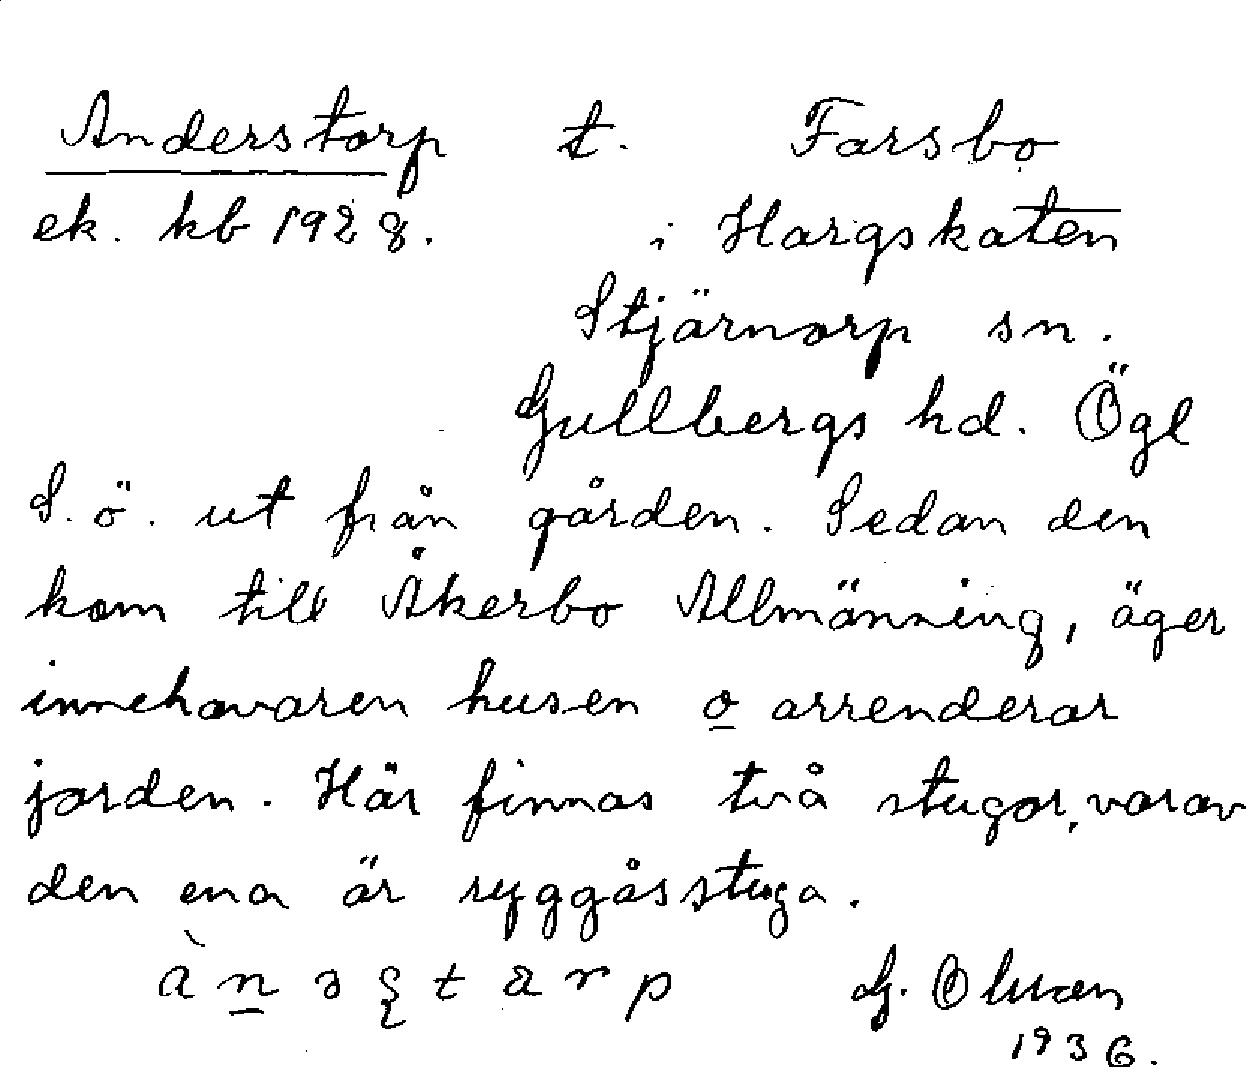 Anderstorp t. Farsbo
ek. kb 1928. i Hargskaten
Stjärnorp sn.
Gullbergs hd. Ögl
S. ö. ut från gården. Sedan den
kom till Åkerbo Allmänning, äger
innehavaren husen o arrenderar
jorden. Här finnas två stugor, varav
den ena är ryggåsstuga.
G.
1936.